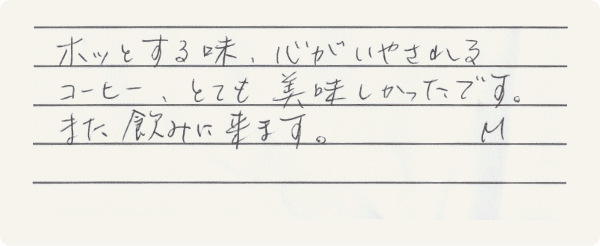 ホッとする味、心がいやされる
コーヒー、とても美味しかったです。
また飲みに来ます。 M